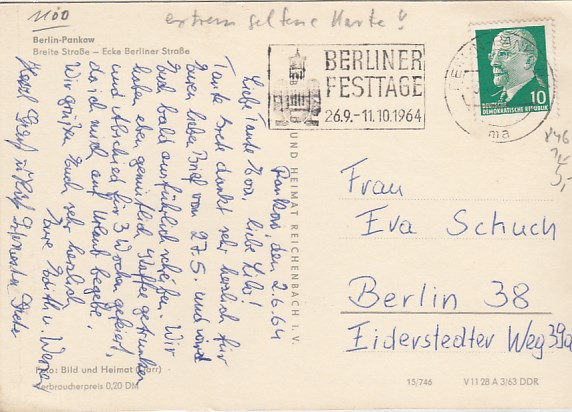 1100
extrem seltene Karte!
Berlin-Pankow
Breite Straße – Ecke Berliner Straße
BERLINER
FESTTAGE
26.9.–11.10.1964
10
DEUTSCHE
DEMOKRATISCHE REPUBLIK
ma
Pankow, den 2.6.64
Liebe Tante Eva, liebe Lilo!
Tante Grete dankt sehr herzlich für
Euren lieben Brief vom 27.5. und wird
Euch bald ausführlich schreiben. Wir
haben eben gemütlich Kaffee getrunken
und Abschied für 3 Wochen gefeiert,
da ich mich auf Urlaub begebe.
Wir grüßen Euch sehr herzlich
Eure Edith u. Werner
UND HEIMAT REICHENBACH I. V.
Frau
Eva Schuch
Berlin 38
Eiderstedter Weg 39a
Foto: Bild und Heimat (Darr)
Verbraucherpreis 0,20 DM
15/746
V 11 28 A 3/63 DDR